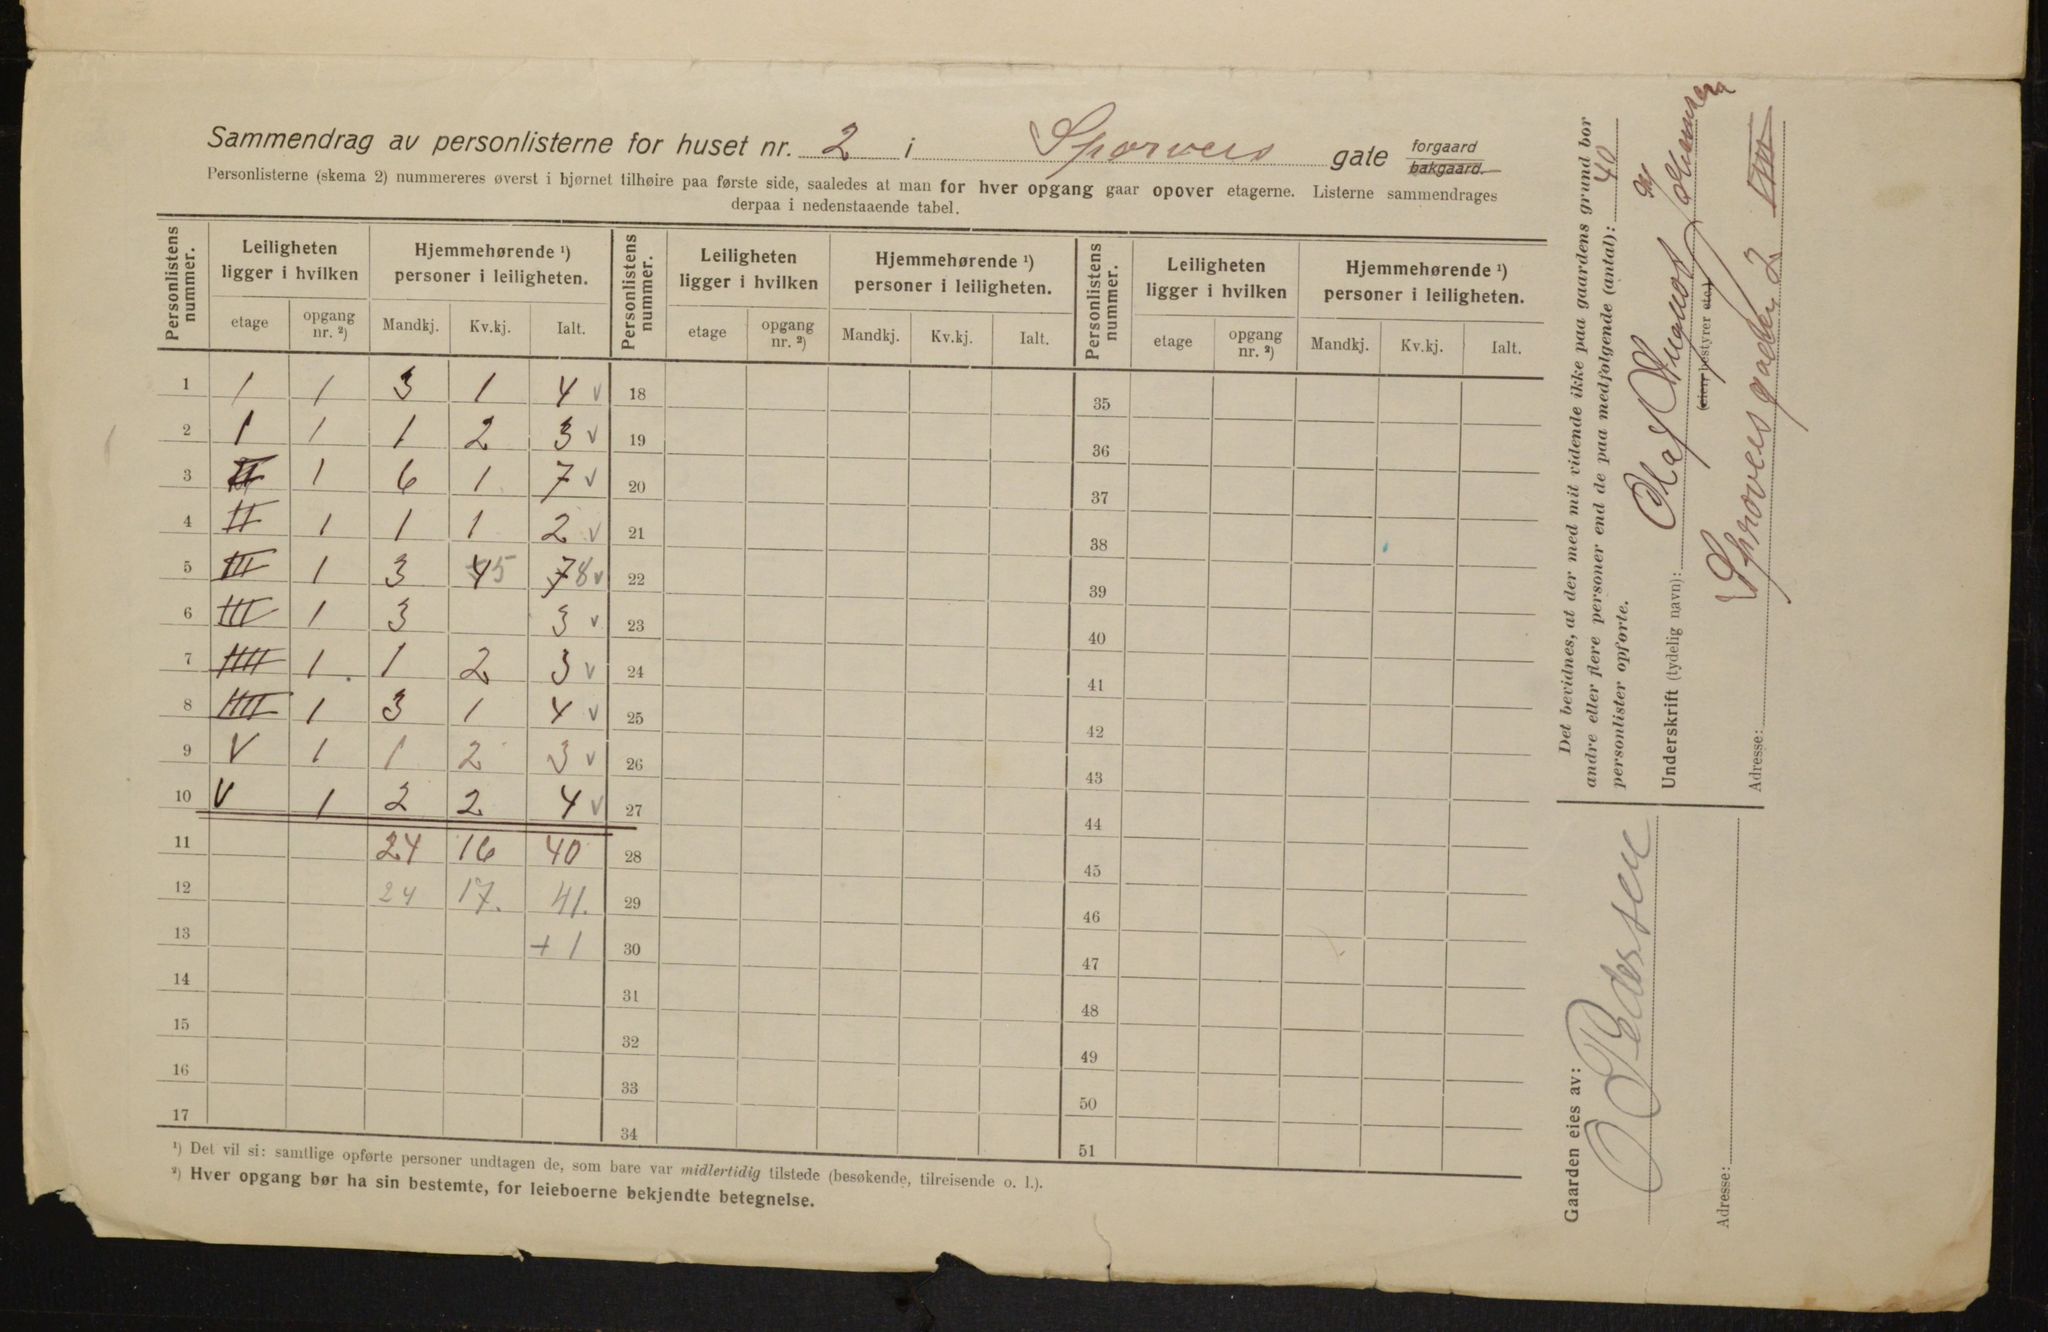 Sammendrag av personlisterne for huset nr. 2 i Sporveis gate forgaard bakgaard.
Personlisterne (skema 2) nummereres øverst i hjørnet tilhøire paa første side, saaledes at man for hver opgang gaar opover etagerne. Listerne sammendrages
derpaa i nedenstaaende tabel.
Personlistens nummer. Leiligheten ligger i hvilken Hjemmehørende ¹) personer i leiligheten. Personlistens nummer. Leiligheten ligger i hvilken Hjemmehørende ¹) personer i leiligheten. Personlistens nummer. Leiligheten ligger i hvilken Hjemmehørende ¹) personer i leiligheten.
etage opgang nr. ²) Mandkj. Kv.kj. Ialt. etage opgang nr. ²) Mandkj. Kv.kj. Ialt. etage opgang nr. ²) Mandkj. Kv.kj. Ialt.
1 I 1 3 1 4 v 18 35
2 I 1 1 2 3 v 19 36
3 II 1 6 1 7 v 20 37
4 II 1 1 1 2 v 21 38
5 III 1 3 4 5 7 8 v 22 39
6 III 1 3 3 v 23 40
7 IIII 1 1 2 3 v 24 41
8 IIII 1 3 1 4 v 25 42
9 V 1 1 2 3 v 26 43
10 V 1 2 2 4 v 27 44
11 24 16 40 28 45
12 24 17. 41. 29 46
13 + 1 30 47
14 31 48
15 32 49
16 33 50
17 34 51
¹) Det vil si: samtlige opførte personer undtagen de, som bare var midlertidig tilstede (besøkende, tilreisende o. l.).
²) Hver opgang bør ha sin bestemte, for leieboerne bekjendte betegnelse.
Det bevidnes, at der med mit vidende ikke paa gaardens grund bor
andre eller flere personer end de paa medfølgende (antal): 40
personlister opførte.
Underskrift (tydelig navn): Olaf August
(eier, bestyrer etc.)
Adresse: Sporveisgaden 2
Gaarden eies av: O Pedersen
Adresse: